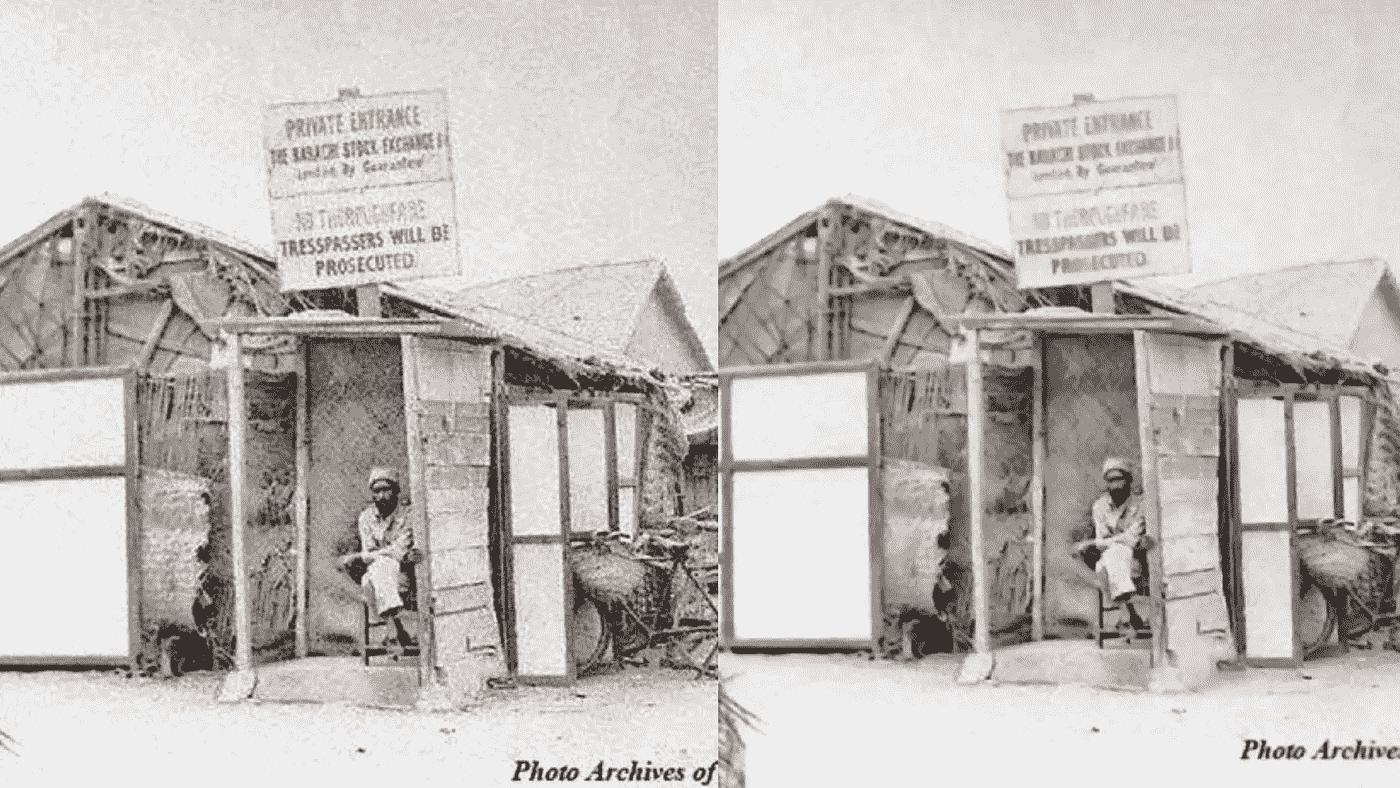 PRIVATE ENTRANCE
THE KARACHI STOCK EXCHANGE
By Guarantee
NO THOROUGHFARE
TRESSPASSERS WILL BE
PROSECUTED
Photo Archives of
PRIVATE ENTRANCE
THE KARACHI STOCK EXCHANGE
By Guarantee
NO THOROUGHFARE
TRESSPASSERS WILL BE
PROSECUTED
Photo Archive